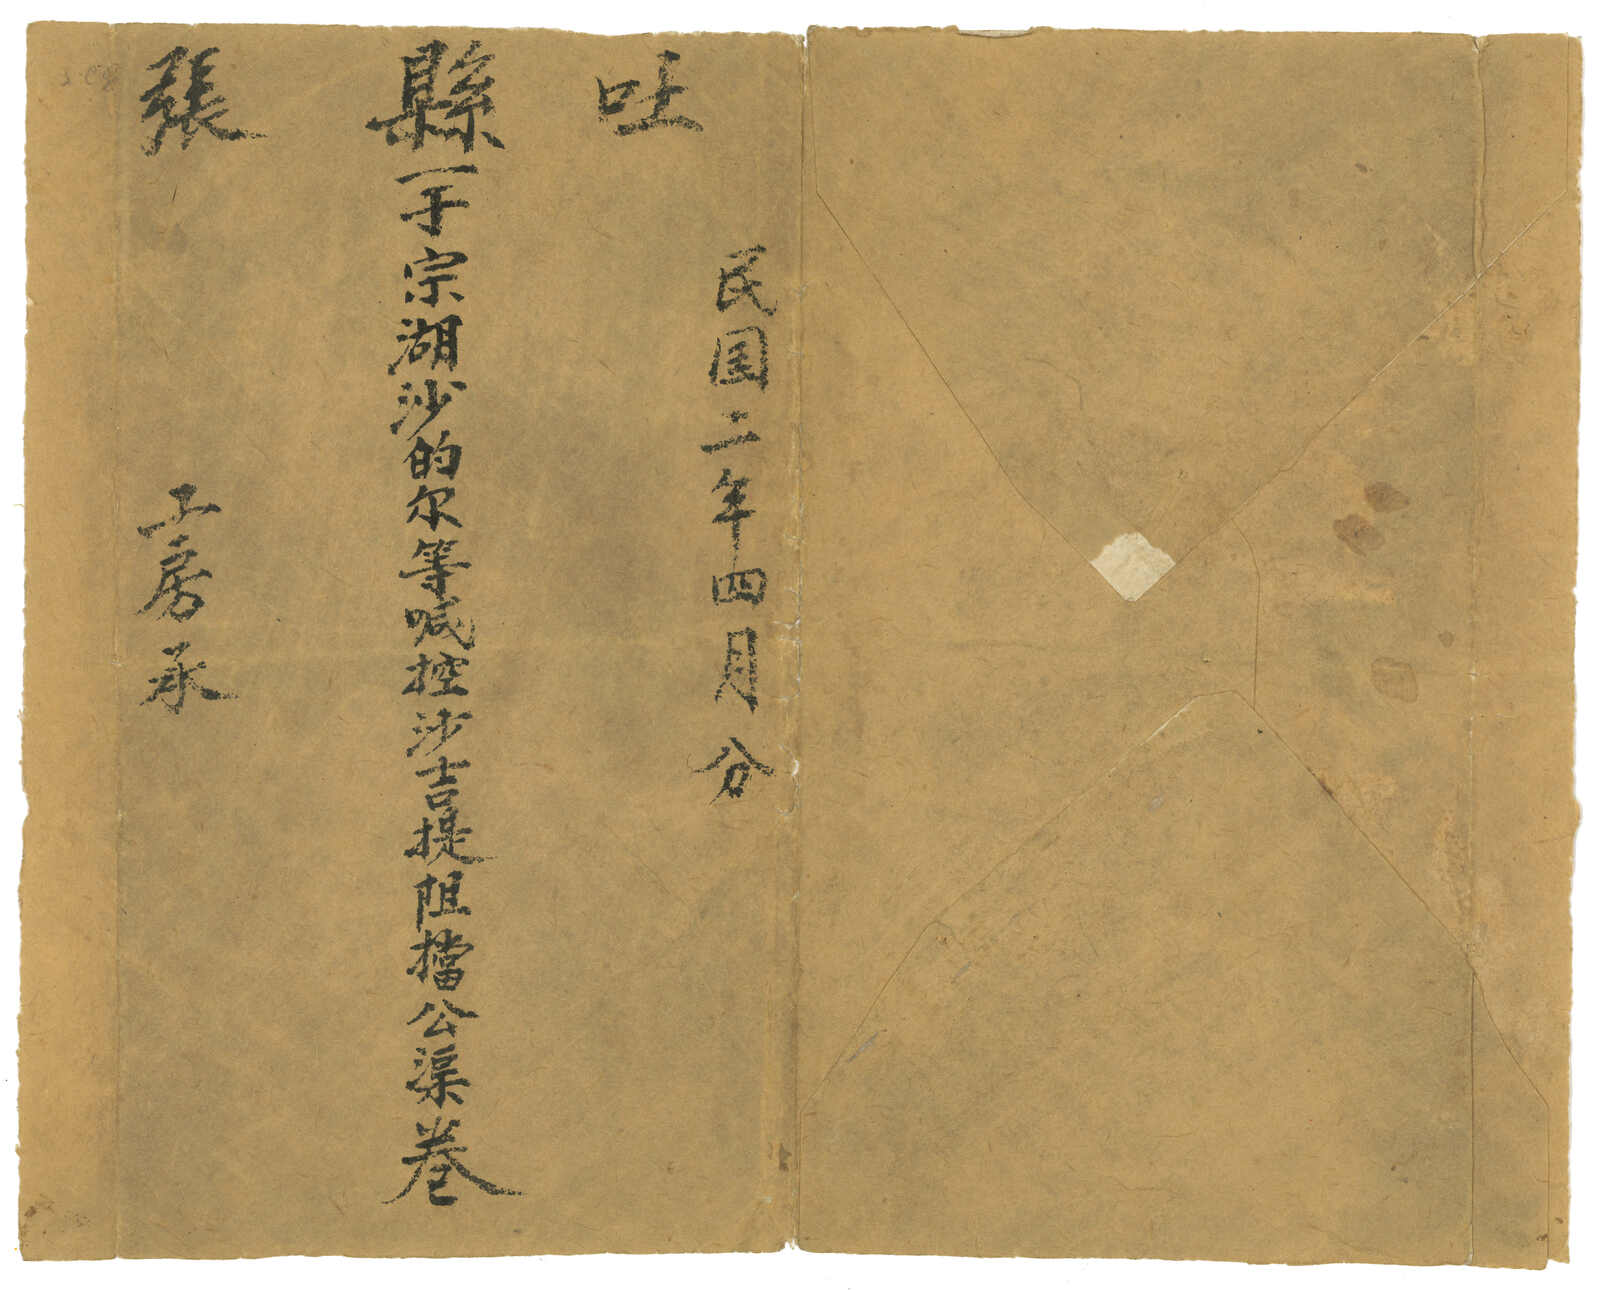 民囯二年四月分
吐
縣一于宗湖沙的尔等喊控沙吉提阻擋公渠卷
張
工房承